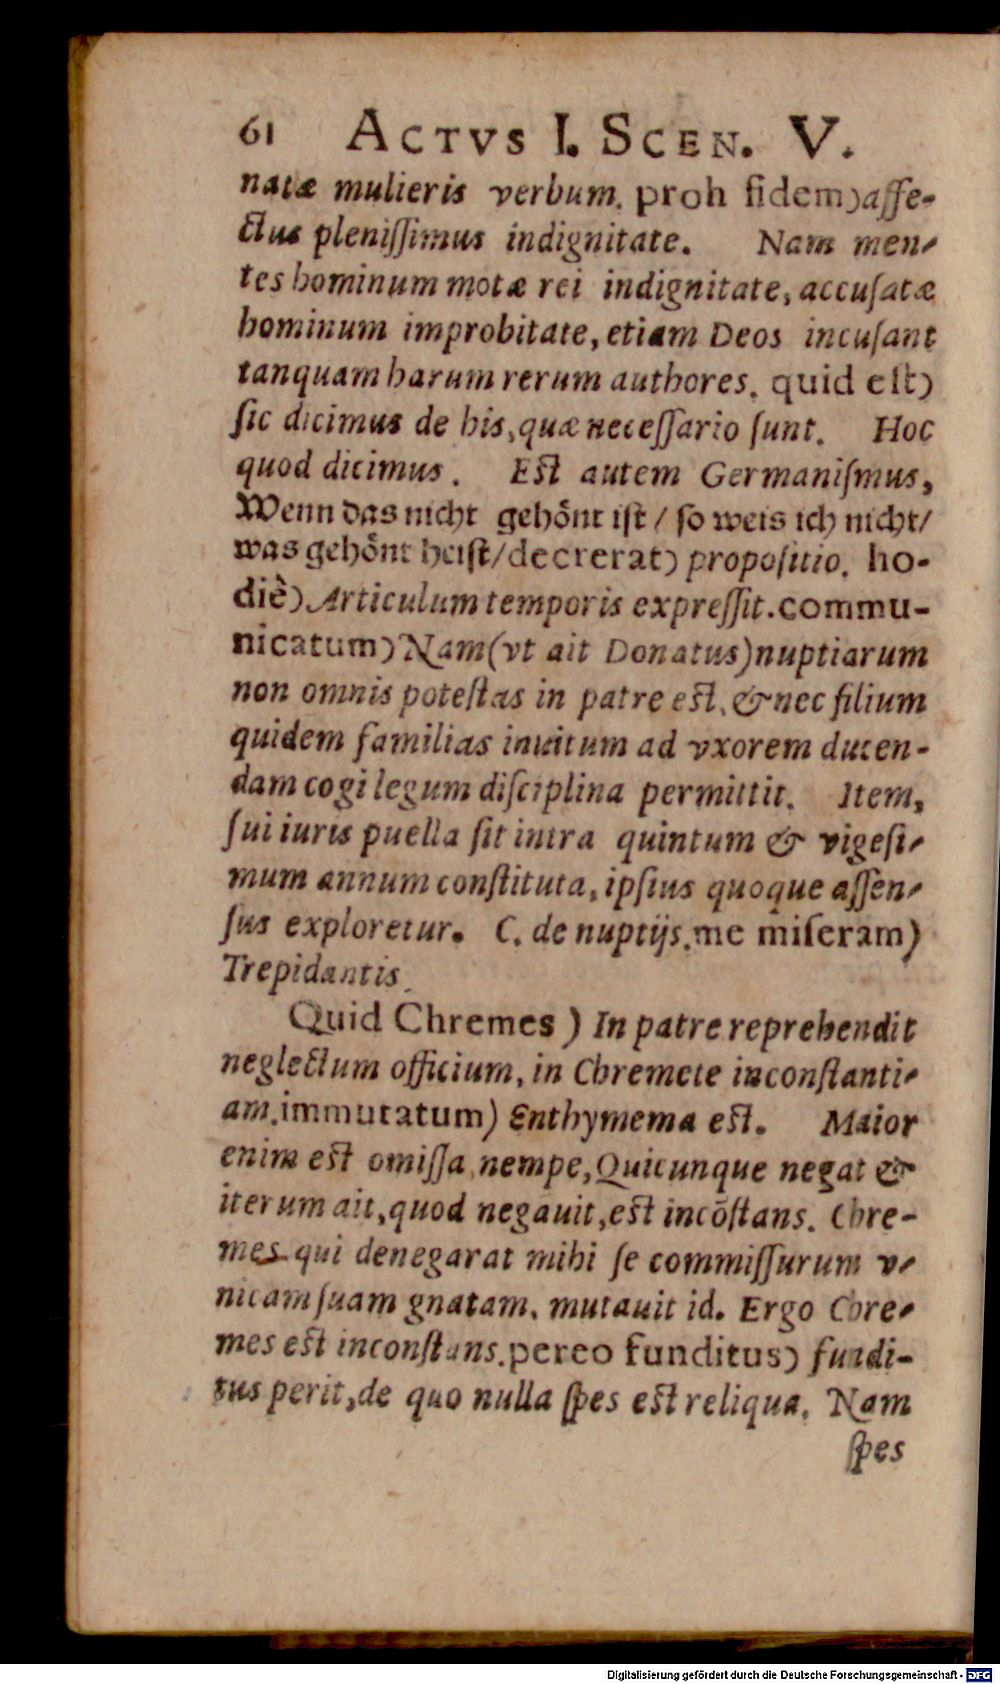 61 ACTVS I. SCEN. V.
natæ mulieris verbum. proh fidem)affe-
ctus pleniſſimus indignitate. Nam men-
tes hominum motæ rei indignitate, accuſatæ
hominum improbitate, etiam Deos incuſant
tanquam harum rerum authores. quid eſt)
ſic dicimus de his, quæ neceſſario ſunt. Hoc
quod dicimus. Eſt autem Germaniſmus,
Wenn das nicht gehönt iſt / ſo weis ich nicht/
was gehönt heiſt/decrerat) propoſitio. ho-
diè) Articulum temporis expreſſit. commu-
nicatum) Nam (vt ait Donatus) nuptiarum
non omnis poteſtas in patre eſt, & nec filium
quidem familias inuitum ad vxorem ducen-
dam cogi legum diſciplina permittit. Item,
ſui iuris puella ſit intra quintum & vigeſi-
mum annum conſtituta, ipſius quoque aſſen-
ſus exploretur. C. de nuptijs. me miſeram)
Trepidantis.
Quid Chremes ) In patre reprehendit
neglectum officium, in Chremete inconſtanti-
am. immutatum) Enthymema eſt. Maior
enim eſt omiſſa nempe, Quicunque negat &
iterum ait, quod negauit, eſt incõſtans. Chre-
mes qui denegarat mihi ſe commiſſurum v-
nicam ſuam gnatam, mutauit id. Ergo Chre-
mes eſt inconſtans. pereo funditus) fundi-
tus perit, de quo nulla ſpes eſt reliqua. Nam
ſpes
Digitalisierung gefördert durch die Deutsche Forschungsgemeinschaft - DFG